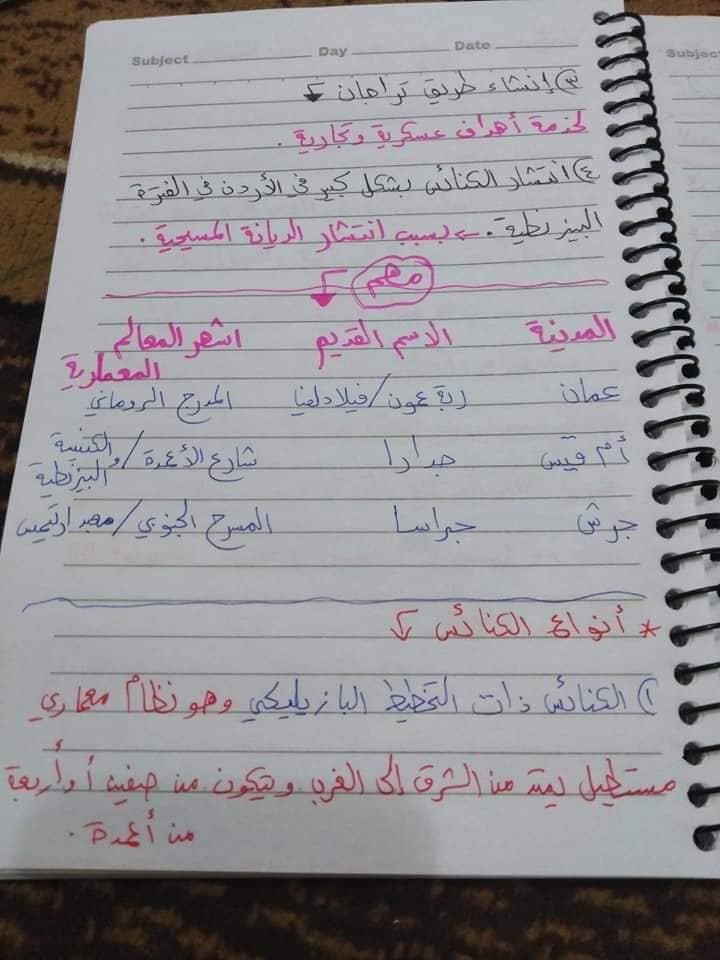 Subject Day Date
٣) إنشاء طريق تراجان ↓
لخدمة أهداف عسكرية وتجارية.
٤) انتشار الكنائس بشكل كبير في الأردن في الفترة
البيزنطية. ← بسبب انتشار الديانة المسيحية.
مهم ↓
المدينة الاسم القديم اشهر المعالم
المعمارية
عمان ربة عمون/فيلادلفيا المدرج الروماني
أم قيس جدارا شارع الأعمدة/والكنيسة
البيزنطية
جرش جراسا المسرح الجنوبي/معبد ارتيمس
* أنواع الكنائس ↓
١) الكنائس ذات التخطيط البازيليكي وهو نظام معماري
مستطيل يمتد من الشرق إلى الغرب ويتكون من صفين أو أربعة
من أعمدة.
Subject